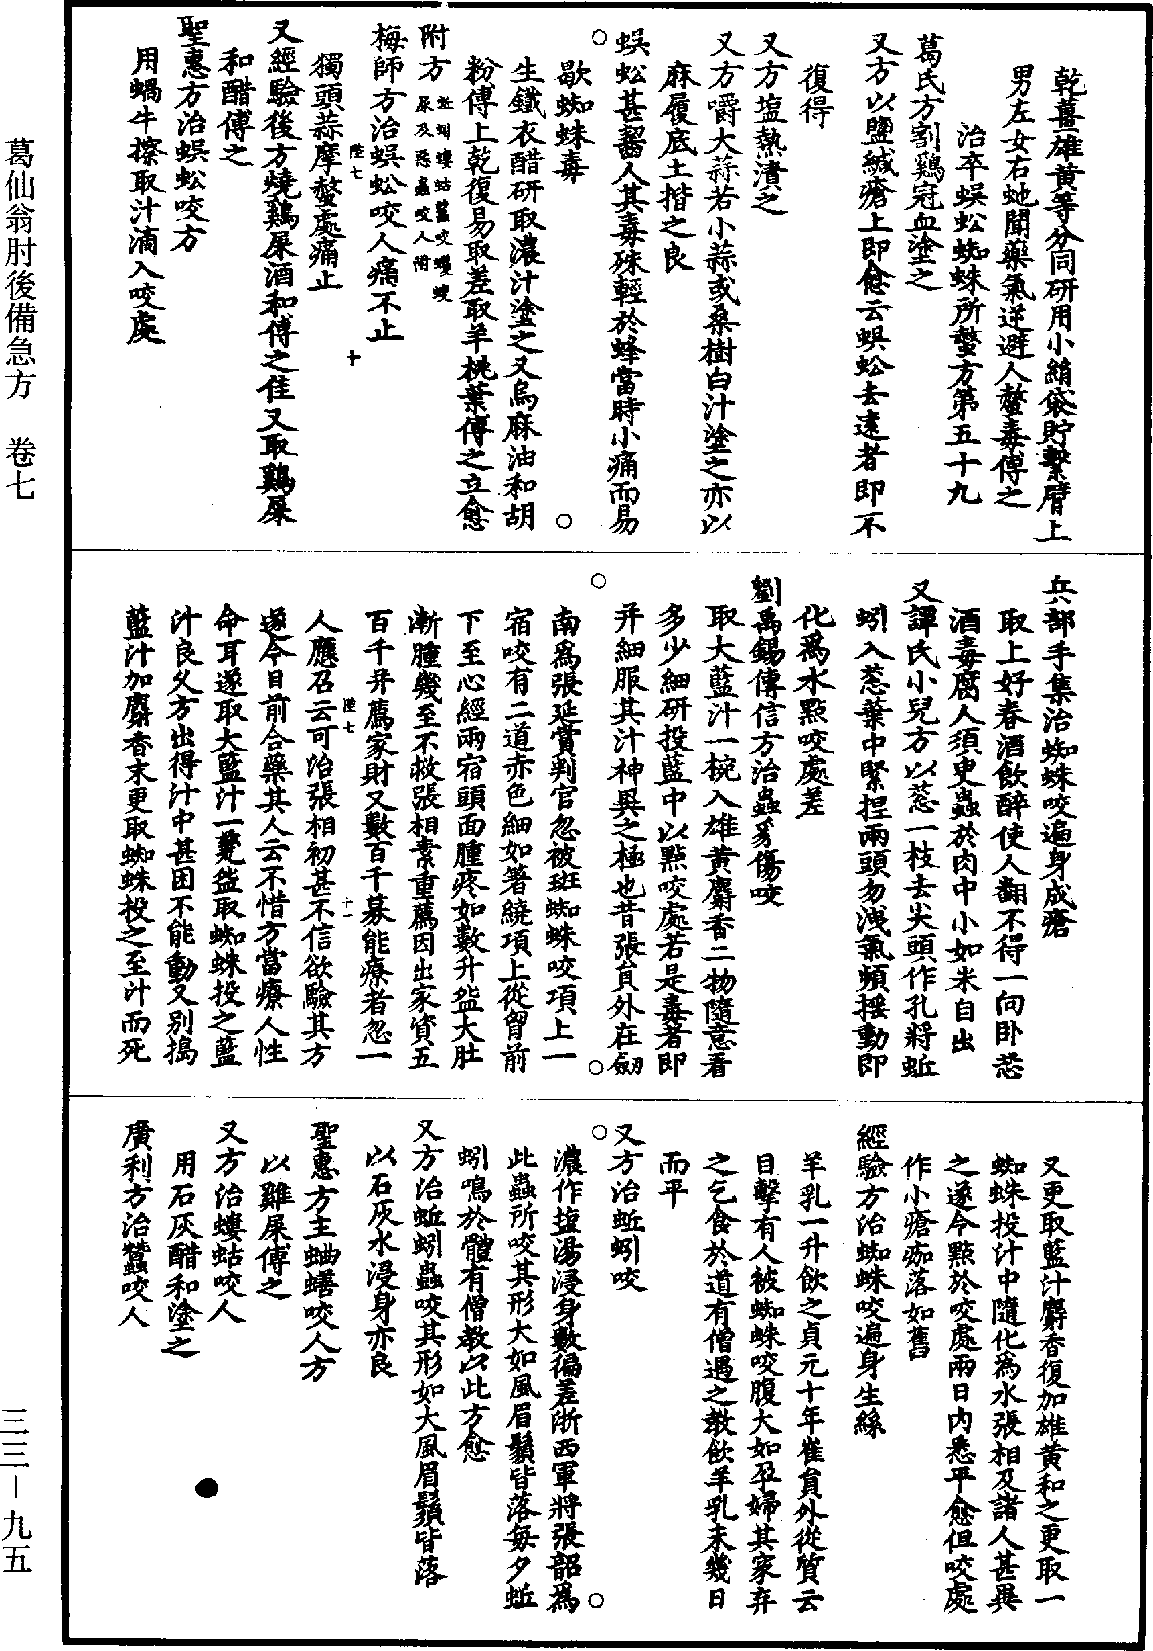 葛仙翁肘後備急方　卷七
乾薑雄黃等分同研用小絹袋貯繫臂上
男左女右虵聞藥氣逆避人螫毒傅之
治卒蜈蚣蜘蛛所螫方第五十九
葛氏方割鷄冠血塗之
又方以鹽緘瘡上即愈云蜈蚣去遠者即不
復得
又方塩熱漬之
又方嚼大蒜若小蒜或桑樹白汁塗之亦以
麻履底土揩之良
蜈蚣甚齧人其毒殊輕於蜂當時小痛而易
歇蜘蛛毒
生鐵衣醋研取濃汁塗之又烏麻油和胡
粉傅上乾復易取差取羊桃葉傅之立愈
附方蚯蚓螻蛄蠶咬蠼螋
尿及惡蟲咬人附
梅師方治蜈蚣咬人痛不止
陞七　十
獨頭蒜摩螫處痛止
又經驗後方燒鷄屎酒和傅之佳又取鷄屎
和醋傅之
聖惠方治蜈蚣咬方
用蝸牛擦取汁滴入咬處
兵部手集治蜘蛛咬遍身成瘡
取上好春酒飲醉使人翻不得一向卧恐
酒毒腐人須臾蟲於肉中小如米自出
又譚氏小兒方以葱一枝去尖頭作孔將蚯
蚓入葱葉中緊捏兩頭勿洩氣頻揺動即
化爲水點咬處差
劉禹錫傳信方治蟲豸傷咬
取大藍汁一椀入雄黃麝香二物隨意看
多少細研投藍中以點咬處若是毒者即
并細服其汁神異之極也昔張貟外在劒
南爲張延賞判官忽被斑蜘蛛咬項上一
宿咬有二道赤色細如箸繞項上從胷前
下至心經兩宿頭面腫疼如數升盌大肚
漸腫幾至不救張相素重薦因出家資五
百千并薦家財又數百千募能療者忽一
陞七　十一
人應召云可治張相初甚不信欲驗其方
遂令目前合藥其人云不惜方當療人性
命耳遂取大藍汁一甆盌取蜘蛛投之藍
汁良久方出得汁中甚困不能動又別搗
藍汁加麝香末更取蜘蛛投之至汁而死
又更取藍汁麝香復加雄黃和之更取一
蜘蛛投汁中隨化爲水張相及諸人甚異
之遂令點於咬處兩日內悉平愈但咬處
作小瘡痂落如舊
經驗方治蜘蛛咬遍身生絲
羊乳一升飲之貞元十年崔貟外從質云
目擊有人被蜘蛛咬腹大如孕婦其家弃
之乞食於道有僧遇之教飲羊乳未幾日
而平
又方治蚯蚓咬
濃作塩湯浸身數徧差浙西軍將張韶爲
此蟲所咬其形大如風眉鬚皆落每夕蚯
蚓鳴於體有僧教以此方愈
又方治蚯蚓蟲咬其形如大風眉鬚皆落
以石灰水浸身亦良
聖惠方主蛐蟮咬人方
以雞屎傅之
又方治螻蛄咬人
用石灰醋和塗之
廣利方治蠶咬人
三三－九五